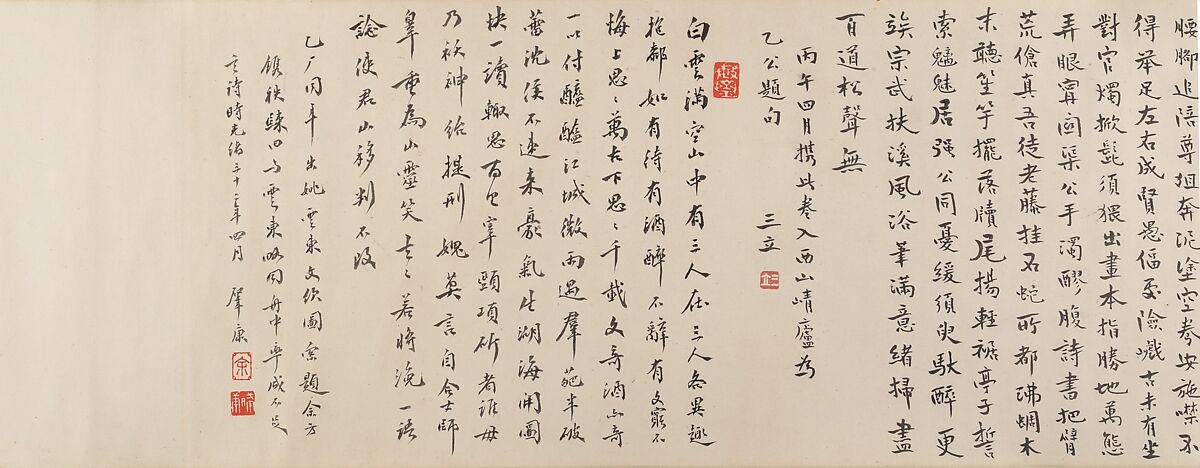 腰腳追陪尊俎奔泥塗空拳安施噤不
得舉足左右成賢愚偪仄險巇古未有坐
對官燭掀髭須猥出畫本指勝地萬態
弄眼甯囦渠公手濁醪腹詩書把臂
荒傖真吾徒老藤挂石蛇所都沸蜩木
末聽笙竽擺落牘尾揚輕裾亭子誓
索魑魅居强公同憂緩須臾馱醉更
竢宗武扶溪風浴筆滿意緒掃盡
百道松聲無
丙午四月攜此卷入西山崝廬為
乙公題句
三立
白雲滿空山中有三人在三人各異趣
都如有待有酒醉不辭有文窮不
悔上思萬古下思千載文奇酒亦奇
一以付醯醢江城微雨過羣葩半破
蕾沈侯不速來豪氣生湖海開圖
快一讀輒思百
頸項斫者誰毋
乃袄神給提刑媿莫言自合士師
辠重為山靈笑去去若將浼一語
諗使君山移判不改
乙厂同年出姚雲東文飲圖索題余方
舟中率成不足
言詩時光緒三十二年四月 肇康